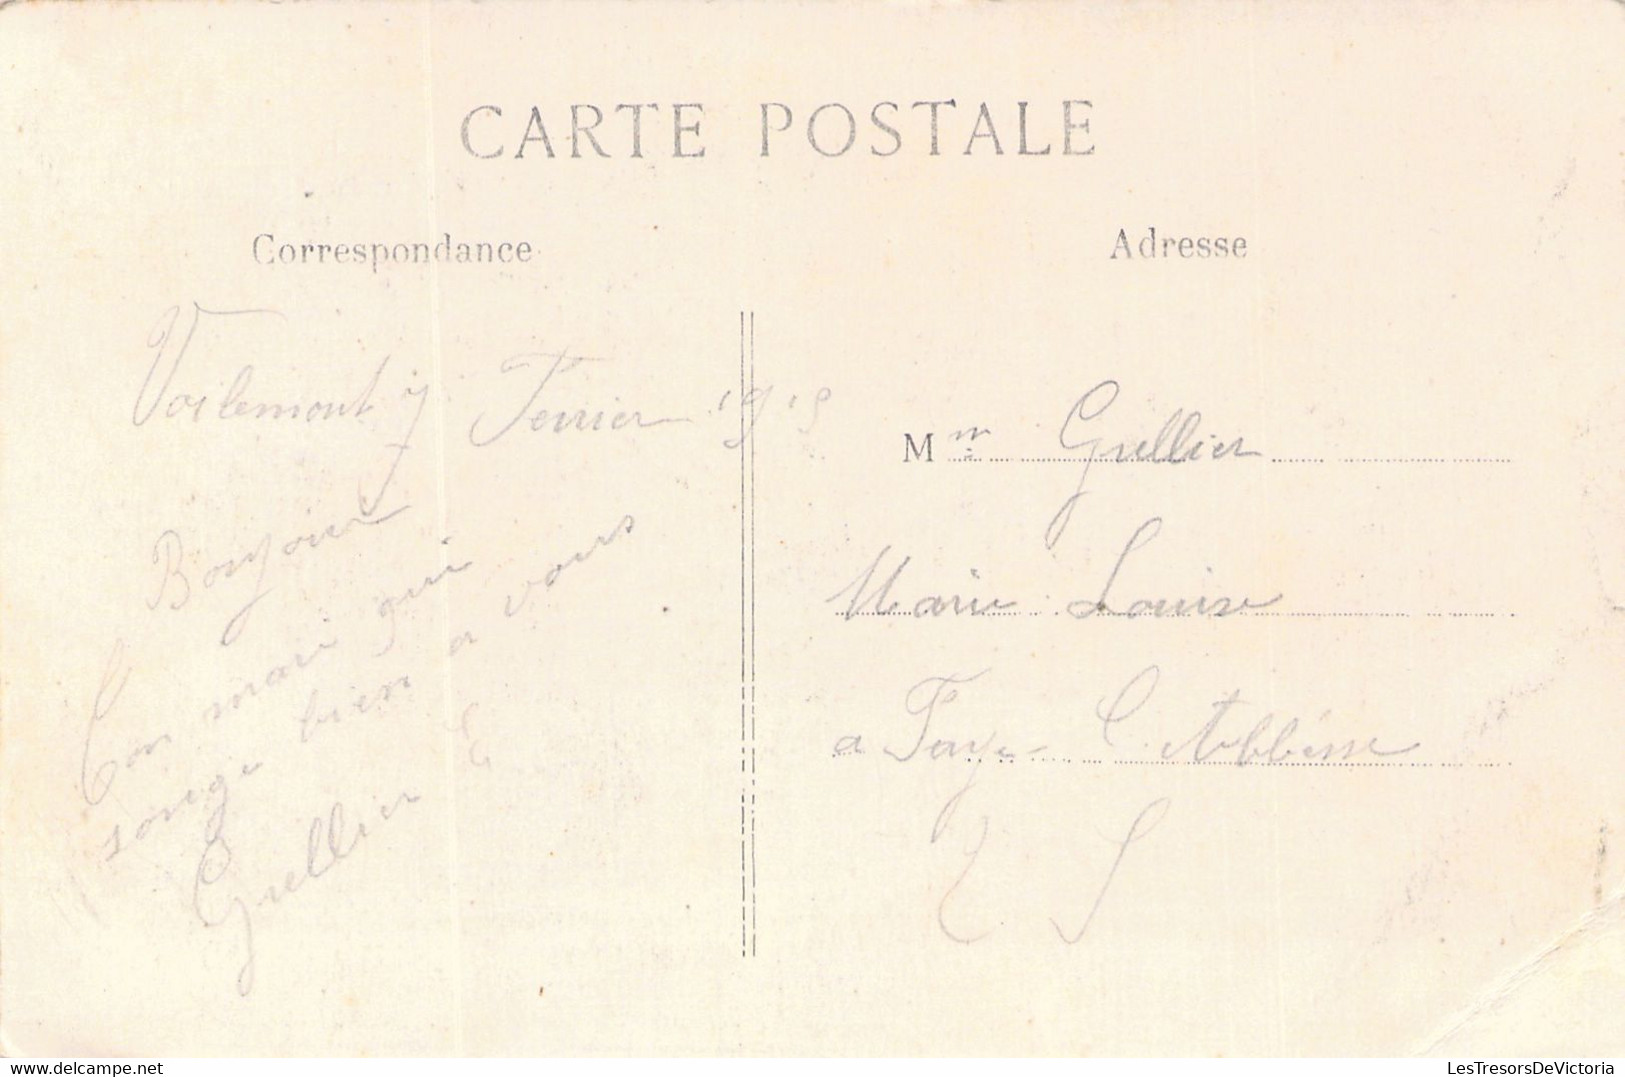 CARTE POSTALE
Correspondance
Voilemont 7 Fevrier 1915
Bonjour
Ton mari qui
songe bien a vous
Grellier E
Adresse
Mme Grellier
Marie Louise
a Faye L'Abbesse
2 S
LesTresorsDeVictoria